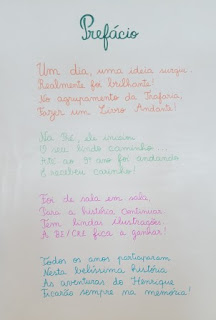 Prefácio
Um dia, uma ideia surgiu.
Realmente foi brilhante!
No agrupamento da Trafaria,
Fazer um Livro Andante!
Na BE, ele iniciou
O seu lindo caminho...
Até ao 9º ano foi andando
E recebeu carinho!
Foi de sala em sala,
Para a história continuar
Tem lindas ilustrações.
A BE/CRE fica a ganhar!
Todos os anos participaram
Nesta belíssima história
As aventuras do Henrique
Ficarão sempre na memória!